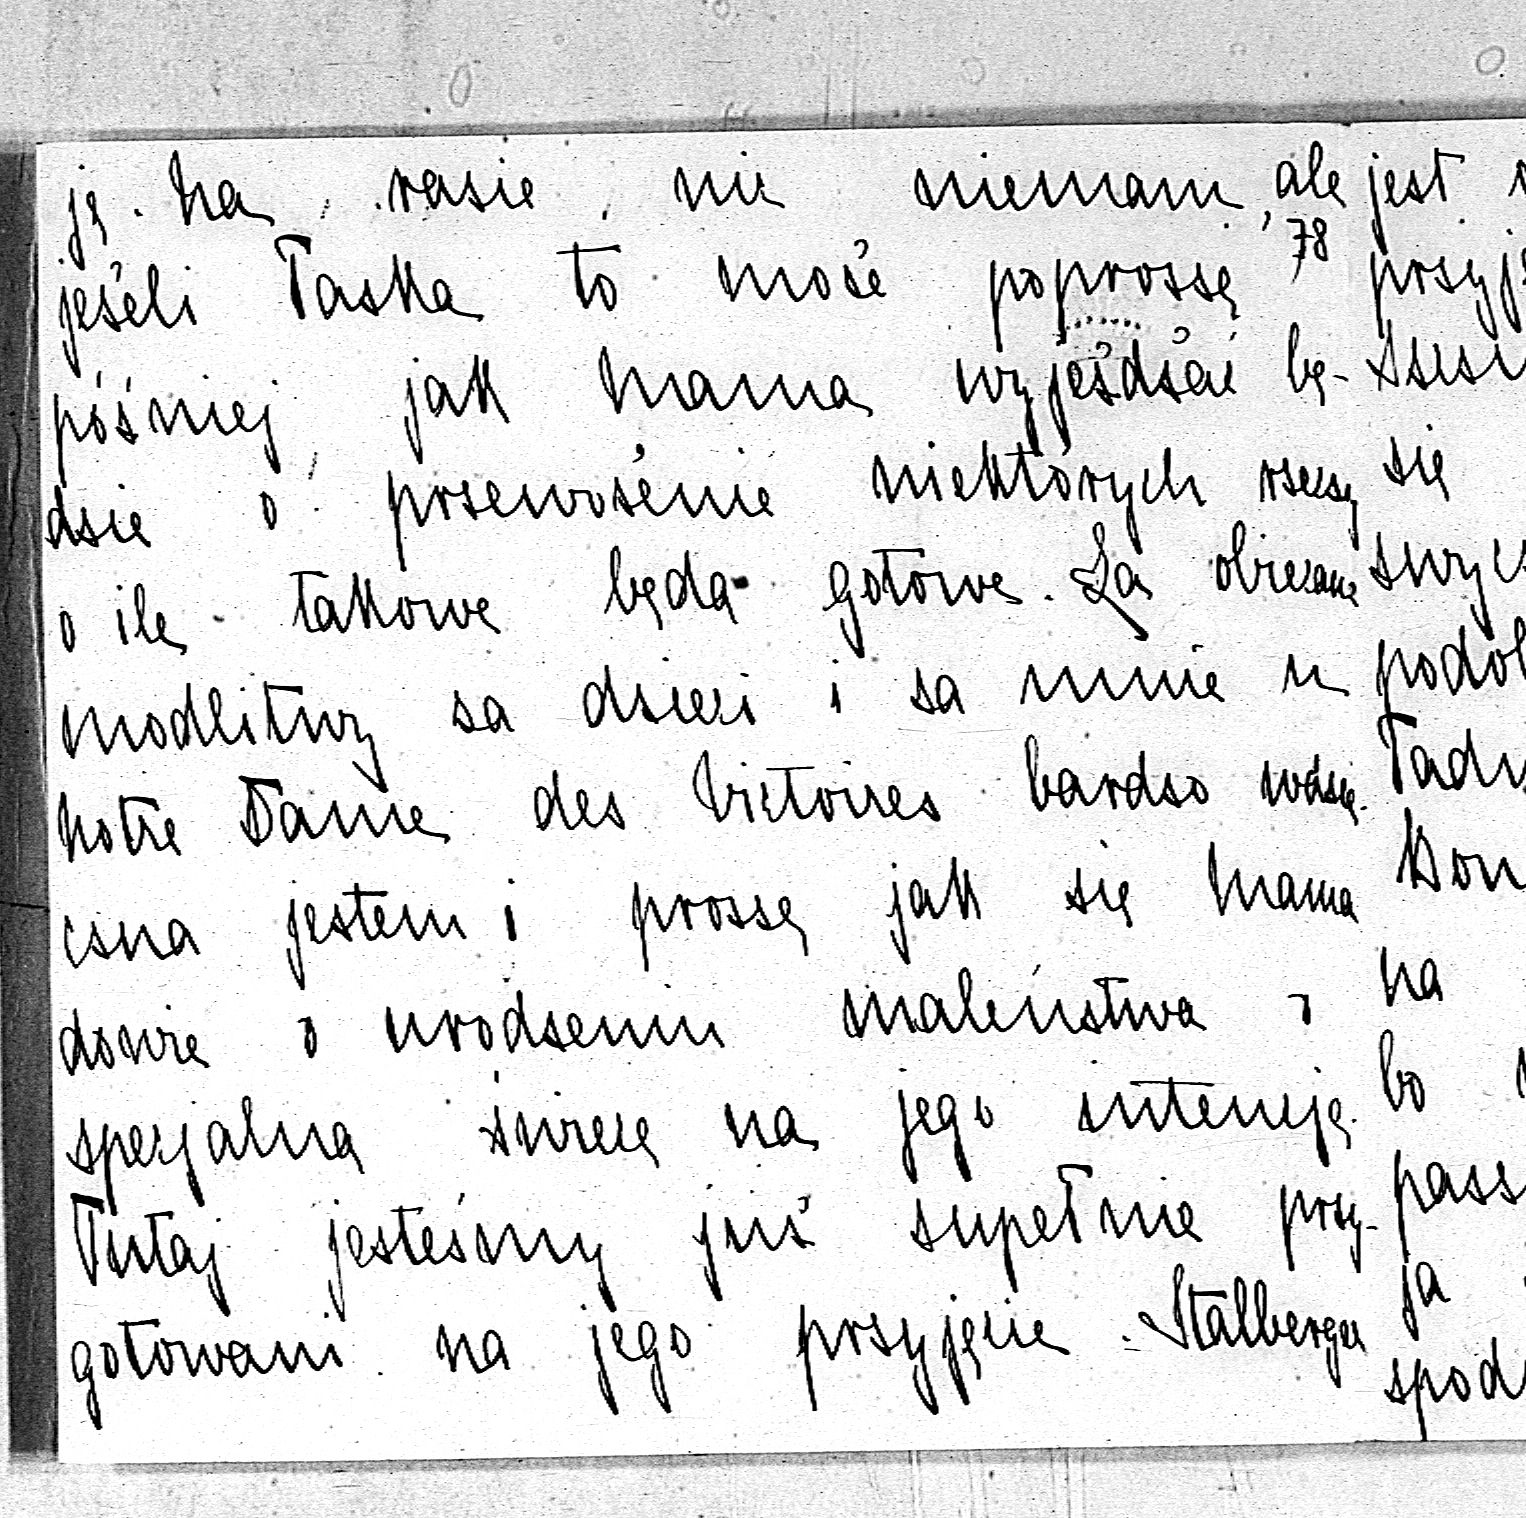 ję. Na razie nic niemam, ale
78
jeżeli łaska to może poproszę
później jak Mama wyjeżdżać bę-
dzie o przewożenie niektórych rzeczy
o ile takowe będą gotowe. Za obiecane
modlitwy za dzieci i za mnie u
Notre Dame des Victoires bardzo wdzię-
czna jestem i proszę jak się Mama
dowie o urodzeniu maleństwa o
specjalną świecę na jego intencję.
Tutaj jesteśmy już zupełnie przy-
gotowani na jego przyjęcie. Stalberga
jest
przyj
się
podob
na
bo
ja
spod